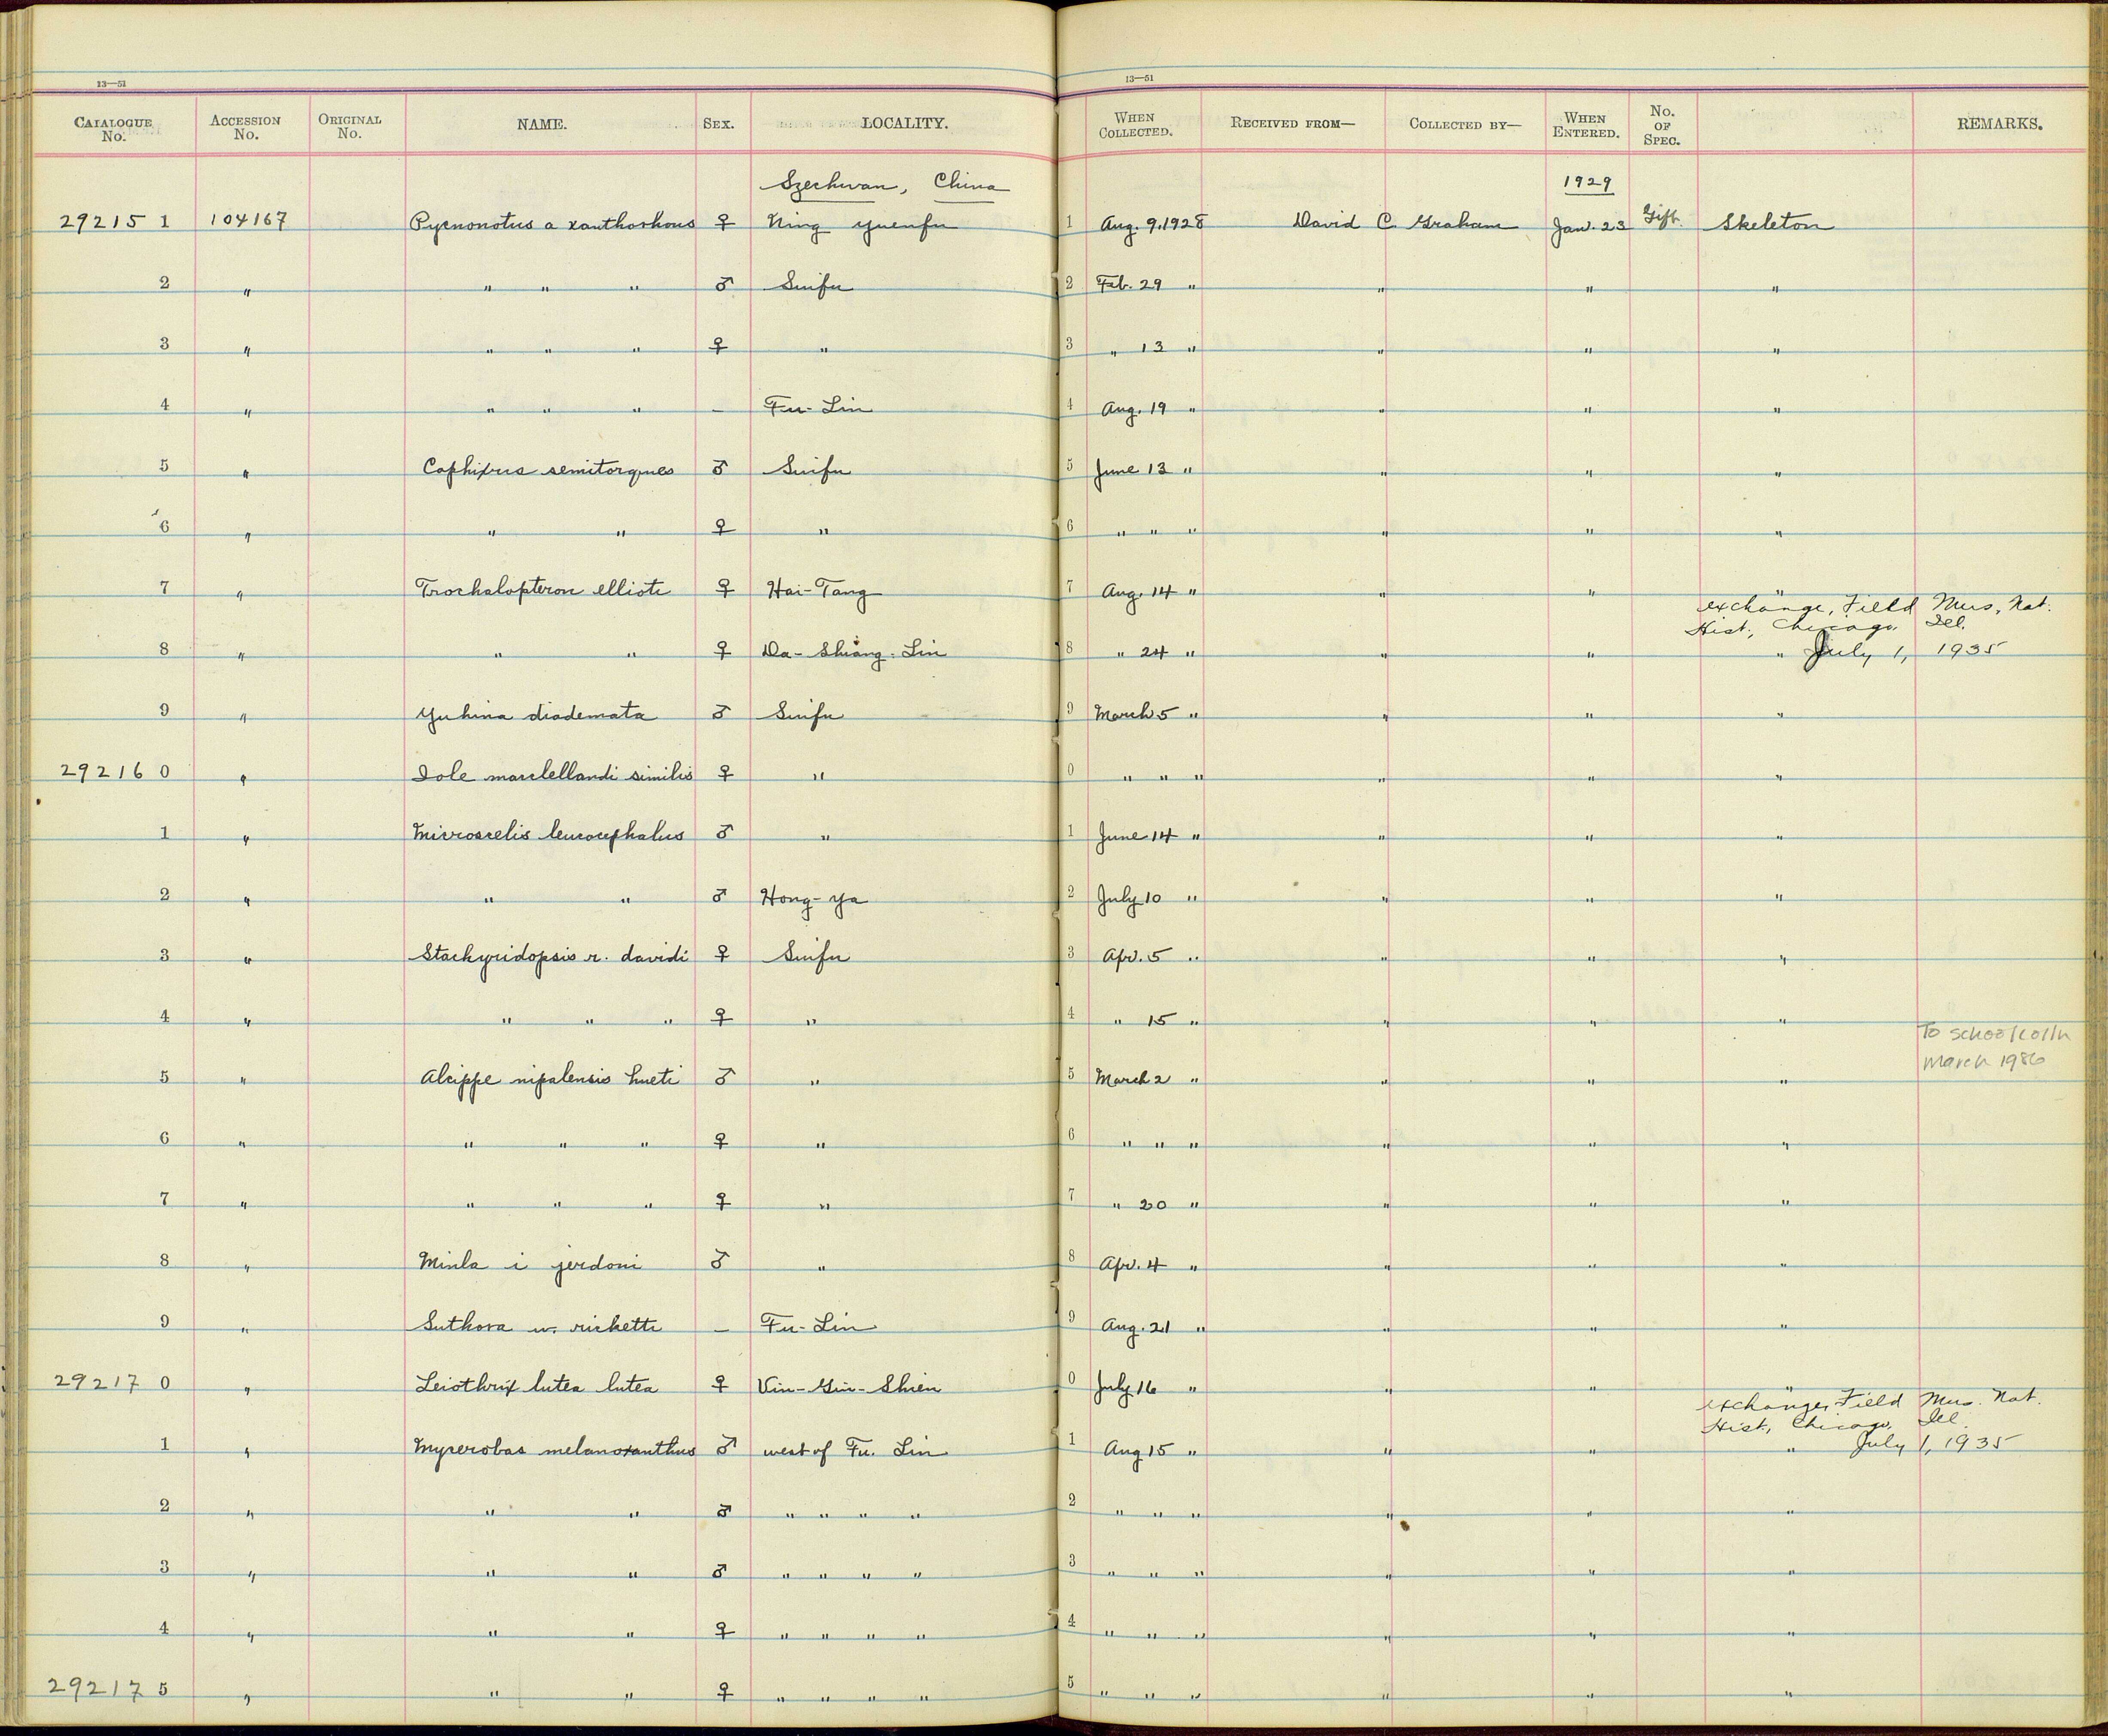 13—51
13—51
CATALOGUE No. ACCESSION No. ORIGINAL No. NAME. SEX. LOCALITY. WHEN COLLECTED. RECEIVED FROM— COLLECTED BY— WHEN ENTERED. No. OF SPEC. REMARKS.
Szechwan, China 1929
29215 1 104167 Pycnonotus a xanthorhous ♀ Ning yuenfu 1 Aug. 9, 1928 David C. Graham Jan. 23 Gift. Skeleton
2 " " " " ♂ Suifu 2 Feb. 29 " " " "
3 " " " " ♀ " 3 " 13 " " " "
4 " " " " – Fu-Lin 4 Aug. 19 " " " "
5 " Cophixus semitorques ♂ Suifu 5 June 13 " " " "
6 " " " ♀ " 6 " " " " " "
7 " Trochalopteron ellioti ♀ Hai-Tang 7 Aug. 14 " " " "
exchange, Field Mus. Nat.
Hist., Chicago, Ill.
8 " " " ♀ Da-Shiang-Lin 8 " 24 " " " " July 1, 1935
9 " Yuhina diademata ♂ Suifu 9 March 5 " " " "
29216 0 " Iole macclellandi similis ♀ " 0 " " " " " "
1 " Microscelis leucocephalus ♂ " 1 June 14 " " " "
2 " " " ♂ Hong-ya 2 July 10 " " " "
3 " Stachyridopsis r. davidi ♀ Suifu 3 Apr. 5 " " " "
4 " " " " ♀ " 4 " 15 " " " "
To school colln
March 1986
5 " Alcippe nipalensis hueti ♂ " 5 March 2 " " " "
6 " " " " ♀ " 6 " " " " " "
7 " " " " ♀ " 7 " 20 " " " "
8 " Minla i jerdoni ♂ " 8 Apr. 4 " " " "
9 " Suthora w. ricketti – Fu-Lin 9 Aug. 21 " " " "
29217 0 " Leiothrix lutea lutea ♀ Vin-Gin-Shien 0 July 16 " " " "
exchange, Field Mus. Nat.
Hist., Chicago, Ill.
1 " Mycerobas melanoxanthus ♂ west of Fu. Lin 1 Aug 15 " " " " July 1, 1935
2 " " " ♂ " " " " 2 " " " " " "
3 " " " ♂ " " " " 3 " " " " " "
4 " " " ♀ " " " " 4 " " " " " "
29217 5 " " " ♀ " " " " 5 " " " " " "